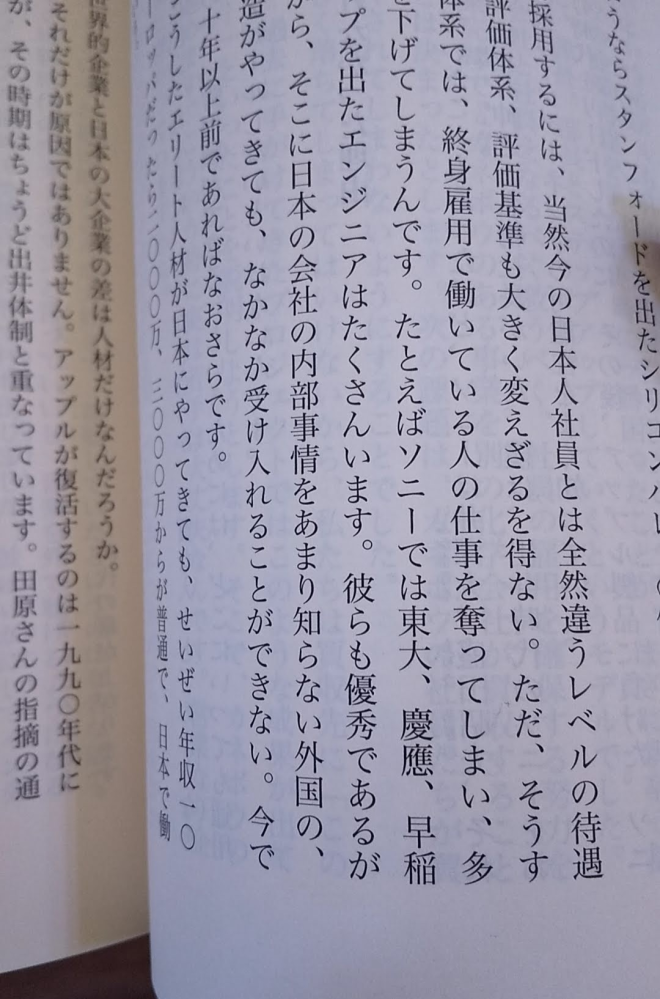 うならスタンフォードを出たシリコンバレ
採用するには、当然今の日本人社員とは全然違うレベルの待遇
評価体系、評価基準も大きく変えざるを得ない。ただ、そうす
体系では、終身雇用で働いている人の仕事を奪ってしまい、多
下げてしまうんです。たとえばソニーでは東大、慶應、早稲
プを出たエンジニアはたくさんいます。彼らも優秀であるが
ら、そこに日本の会社の内部事情をあまり知らない外国の、
造がやってきても、なかなか受け入れることができない。今で
十年以上前であればなおさらです。
こうしたエリート人材が日本にやってきても、せいぜい年収一〇
ーロッパだったら二〇〇〇万、三〇〇〇万からが普通で、日本で働
世界的企業と日本の大企業の差は人材だけなんだろうか。
それだけが原因ではありません。アップルが復活するのは一九九〇年代に
が、その時期はちょうど出井体制と重なっています。田原さんの指摘の通